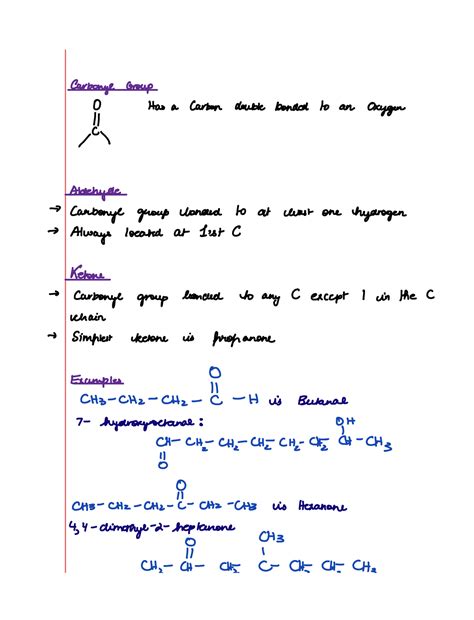 Carbonyl Group
O
||
C
Has a Carbon double bonded to an Oxygen
Aldehyde
→ Carbonyl group bonded to at least one hydrogen
→ Always located at 1st C
Ketone
→ Carbonyl group bonded to any C except 1 in the C
chain
→ Simplest ketone is propanone
Examples
O
||
CH3-CH2-CH2-C-H is Butanal
7- hydroxyoctanal:
OH
CH-CH2-CH2-CH2-CH2-CH2-CH-CH3
||
O
O
||
CH3-CH2-CH2-C-CH2-CH3 is Hexanone
4,4-dimethyl-2-heptanone
O
||
CH3
CH3-CH-CH2-C-CH2-CH2-CH3